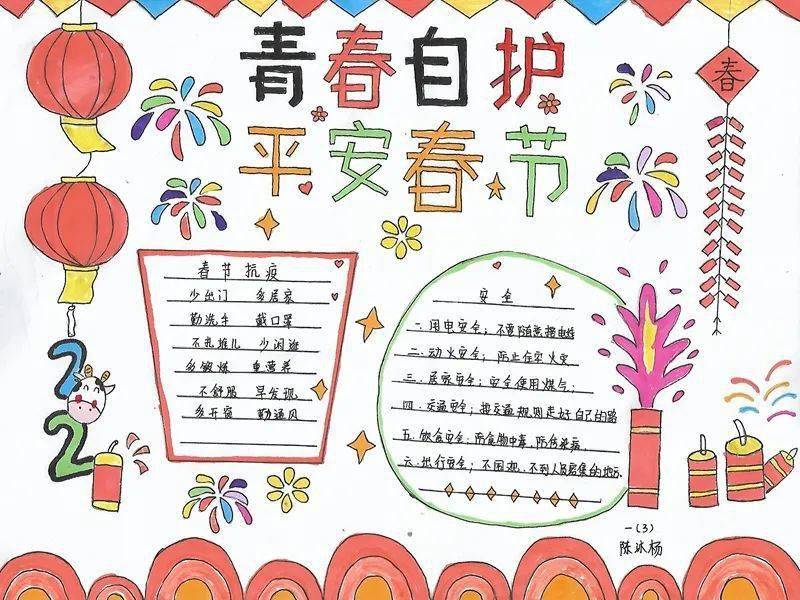 青春自护
平安春节
春
春节抗疫
少出门 多居家
勤洗手 戴口罩
不扎堆儿 少闲逛
多锻炼 重营养
不舒服 早发现
多开窗 勤通风
2021
安全
一.用电安全；不要随意电线
二.动火安全；防止住宅火灾
三.居家安全；安全使用煤气；
四.交通安全；按交通规则走好自己的路
五.饮食安全；防食物中毒,防传染病.
六.出行安全；不围观,不到人员密集的地方.
一(3)
陈 杨